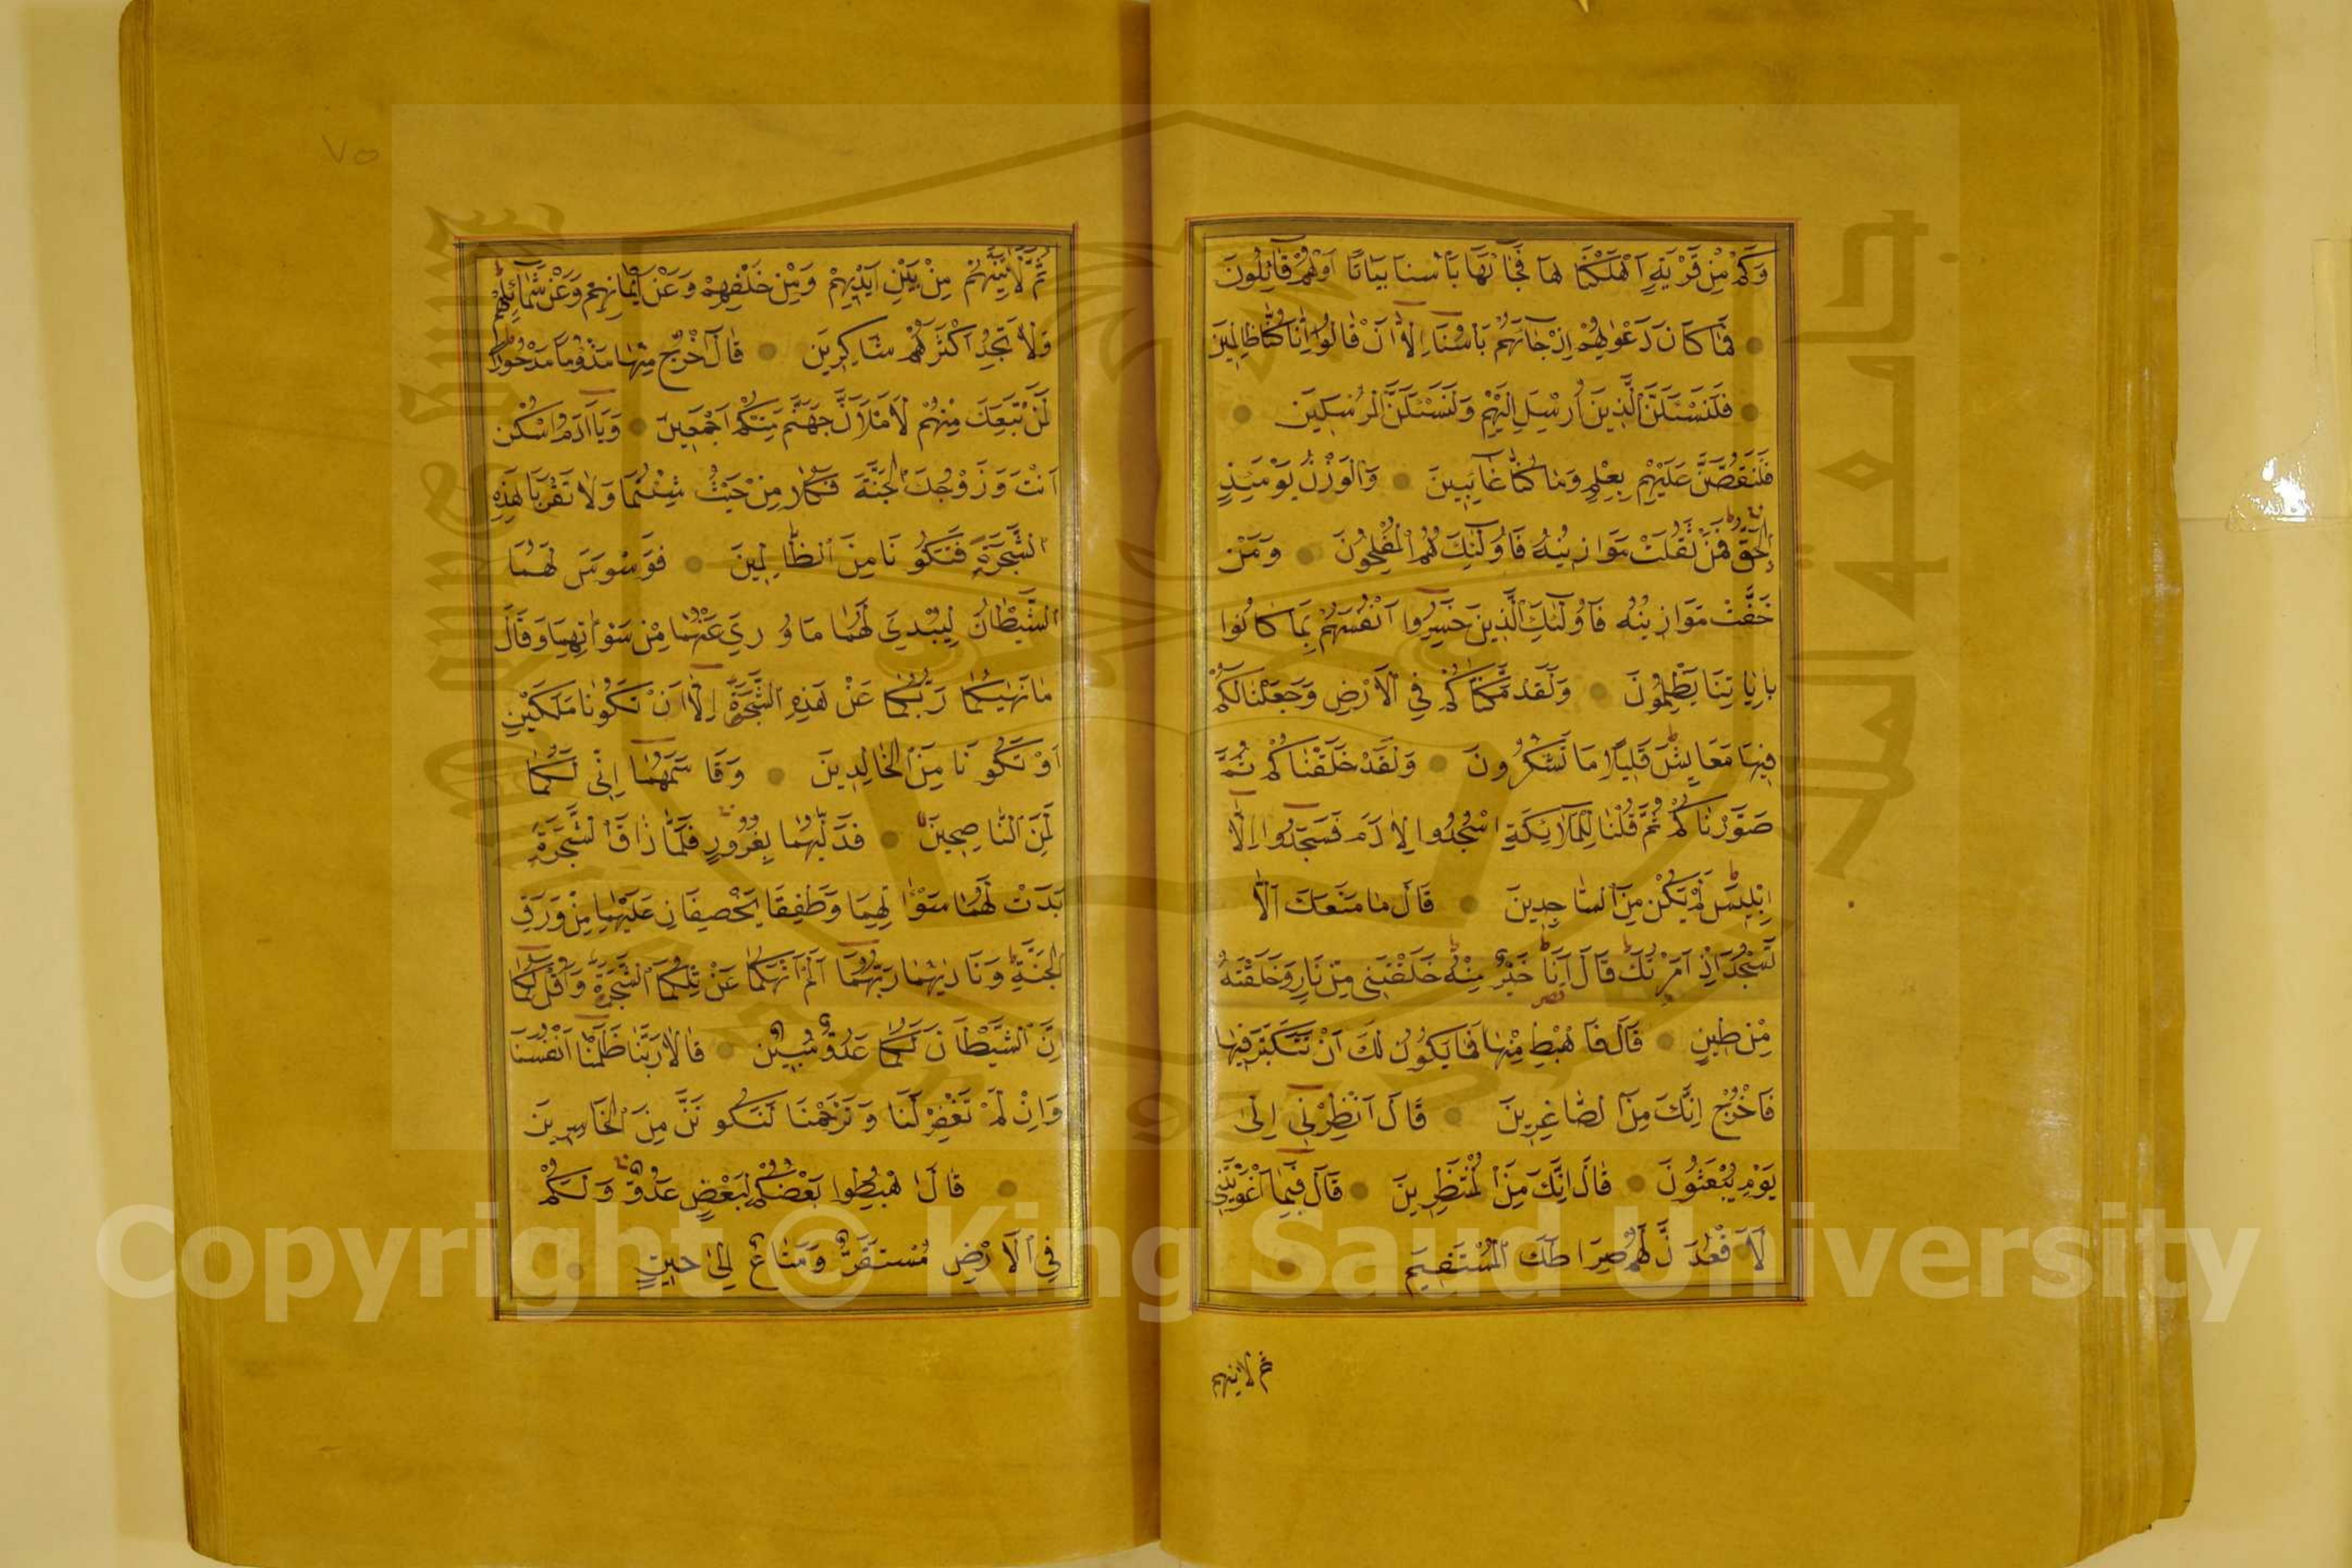 وَكَمْ مِنْ قَرْيَةٍ اَهْلَكْنَا هَا فَجَآئَهَا بَأْسُنَا بَيَاتًا اَوْهُمْ قَائِلُونَ
فَمَا كَانَ دَعْوٰيهُمْ اِذْ جَآئَهُمْ بَأْسُنَا اِلَّا اَنْ قَالُوا اِنَّا كُنَّا ظَالِمِينَ
فَلَنَسْئَلَنَّ الَّذِينَ اُرْسِلَ اِلَيْهِمْ وَلَنَسْئَلَنَّ الْمُرْسَلِينَ
فَلَنَقُصَّنَّ عَلَيْهِمْ بِعِلْمٍ وَمَا كُنَّا غَائِبِينَ وَالْوَزْنُ يَوْمَئِذٍ
الْحَقُّ فَمَنْ ثَقُلَتْ مَوَازِينُهُ فَاُولٰئِكَ هُمُ الْمُفْلِحُونَ وَمَنْ
خَفَّتْ مَوَازِينُهُ فَاُولٰئِكَ الَّذِينَ خَسِرُوا اَنْفُسَهُمْ بِمَا كَانُوا
بِاٰيَاتِنَا يَظْلِمُونَ وَلَقَدْ مَكَّنَّاكُمْ فِي الْاَرْضِ وَجَعَلْنَا لَكُمْ
فِيهَا مَعَايِشَ قَلِيلًا مَا تَشْكُرُونَ وَلَقَدْ خَلَقْنَاكُمْ ثُمَّ
صَوَّرْنَاكُمْ ثُمَّ قُلْنَا لِلْمَلَائِكَةِ اسْجُدُوا لِاٰدَمَ فَسَجَدُوا اِلَّا
اِبْلِيسَ لَمْ يَكُنْ مِنَ السَّاجِدِينَ قَالَ مَا مَنَعَكَ اَلَّا
تَسْجُدَ اِذْ اَمَرْتُكَ قَالَ اَنَا خَيْرٌ مِنْهُ خَلَقْتَنِي مِنْ نَارٍ وَخَلَقْتَهُ
مِنْ طِينٍ قَالَ فَاهْبِطْ مِنْهَا فَمَا يَكُونُ لَكَ اَنْ تَتَكَبَّرَ فِيهَا
فَاخْرُجْ اِنَّكَ مِنَ الصَّاغِرِينَ قَالَ اَنْظِرْنِي اِلٰى
يَوْمِ يُبْعَثُونَ قَالَ اِنَّكَ مِنَ الْمُنْظَرِينَ قَالَ فَبِمَا اَغْوَيْتَنِي
لَاَقْعُدَنَّ لَهُمْ صِرَاطَكَ الْمُسْتَقِيمَ
ثم لاتينهم
٧٥
ثُمَّ لَاٰتِيَنَّهُمْ مِنْ بَيْنِ اَيْدِيهِمْ وَمِنْ خَلْفِهِمْ وَعَنْ اَيْمَانِهِمْ وَعَنْ شَمَائِلِهِمْ
وَلَا تَجِدُ اَكْثَرَهُمْ شَاكِرِينَ قَالَ اخْرُجْ مِنْهَا مَذْؤُمًا مَدْحُورًا
لَمَنْ تَبِعَكَ مِنْهُمْ لَاَمْلَاَنَّ جَهَنَّمَ مِنْكُمْ اَجْمَعِينَ وَيَااٰدَمُ اسْكُنْ
اَنْتَ وَزَوْجُكَ الْجَنَّةَ فَكُلَا مِنْ حَيْثُ شِئْتُمَا وَلَا تَقْرَبَا هٰذِهِ
الشَّجَرَةَ فَتَكُونَا مِنَ الظَّالِمِينَ فَوَسْوَسَ لَهُمَا
الشَّيْطَانُ لِيُبْدِيَ لَهُمَا مَا وُرِيَ عَنْهُمَا مِنْ سَوْاٰتِهِمَا وَقَالَ
مَا نَهٰيكُمَا رَبُّكُمَا عَنْ هٰذِهِ الشَّجَرَةِ اِلَّا اَنْ تَكُونَا مَلَكَيْنِ
اَوْ تَكُونَا مِنَ الْخَالِدِينَ وَقَاسَمَهُمَا اِنِّي لَكُمَا
لَمِنَ النَّاصِحِينَ فَدَلّٰيهُمَا بِغُرُورٍ فَلَمَّا ذَاقَا الشَّجَرَةَ
بَدَتْ لَهُمَا سَوْاٰتُهِمَا وَطَفِقَا يَخْصِفَانِ عَلَيْهِمَا مِنْ وَرَقِ
الْجَنَّةِ وَنَادٰيهُمَا رَبُّهُمَا اَلَمْ اَنْهَكُمَا عَنْ تِلْكُمَا الشَّجَرَةِ وَاَقُلْ لَكُمَا
اِنَّ الشَّيْطَانَ لَكُمَا عَدُوٌّ مُبِينٌ قَالَا رَبَّنَا ظَلَمْنَا اَنْفُسَنَا
وَاِنْ لَمْ تَغْفِرْ لَنَا وَتَرْحَمْنَا لَنَكُونَنَّ مِنَ الْخَاسِرِينَ
قَالَ اهْبِطُوا بَعْضُكُمْ لِبَعْضٍ عَدُوٌّ وَلَكُمْ
فِي الْاَرْضِ مُسْتَقَرٌّ وَمَتَاعٌ اِلٰى حِينٍ
جامعة الملك سعود
King Saud University
1957
Copyright © King Saud University